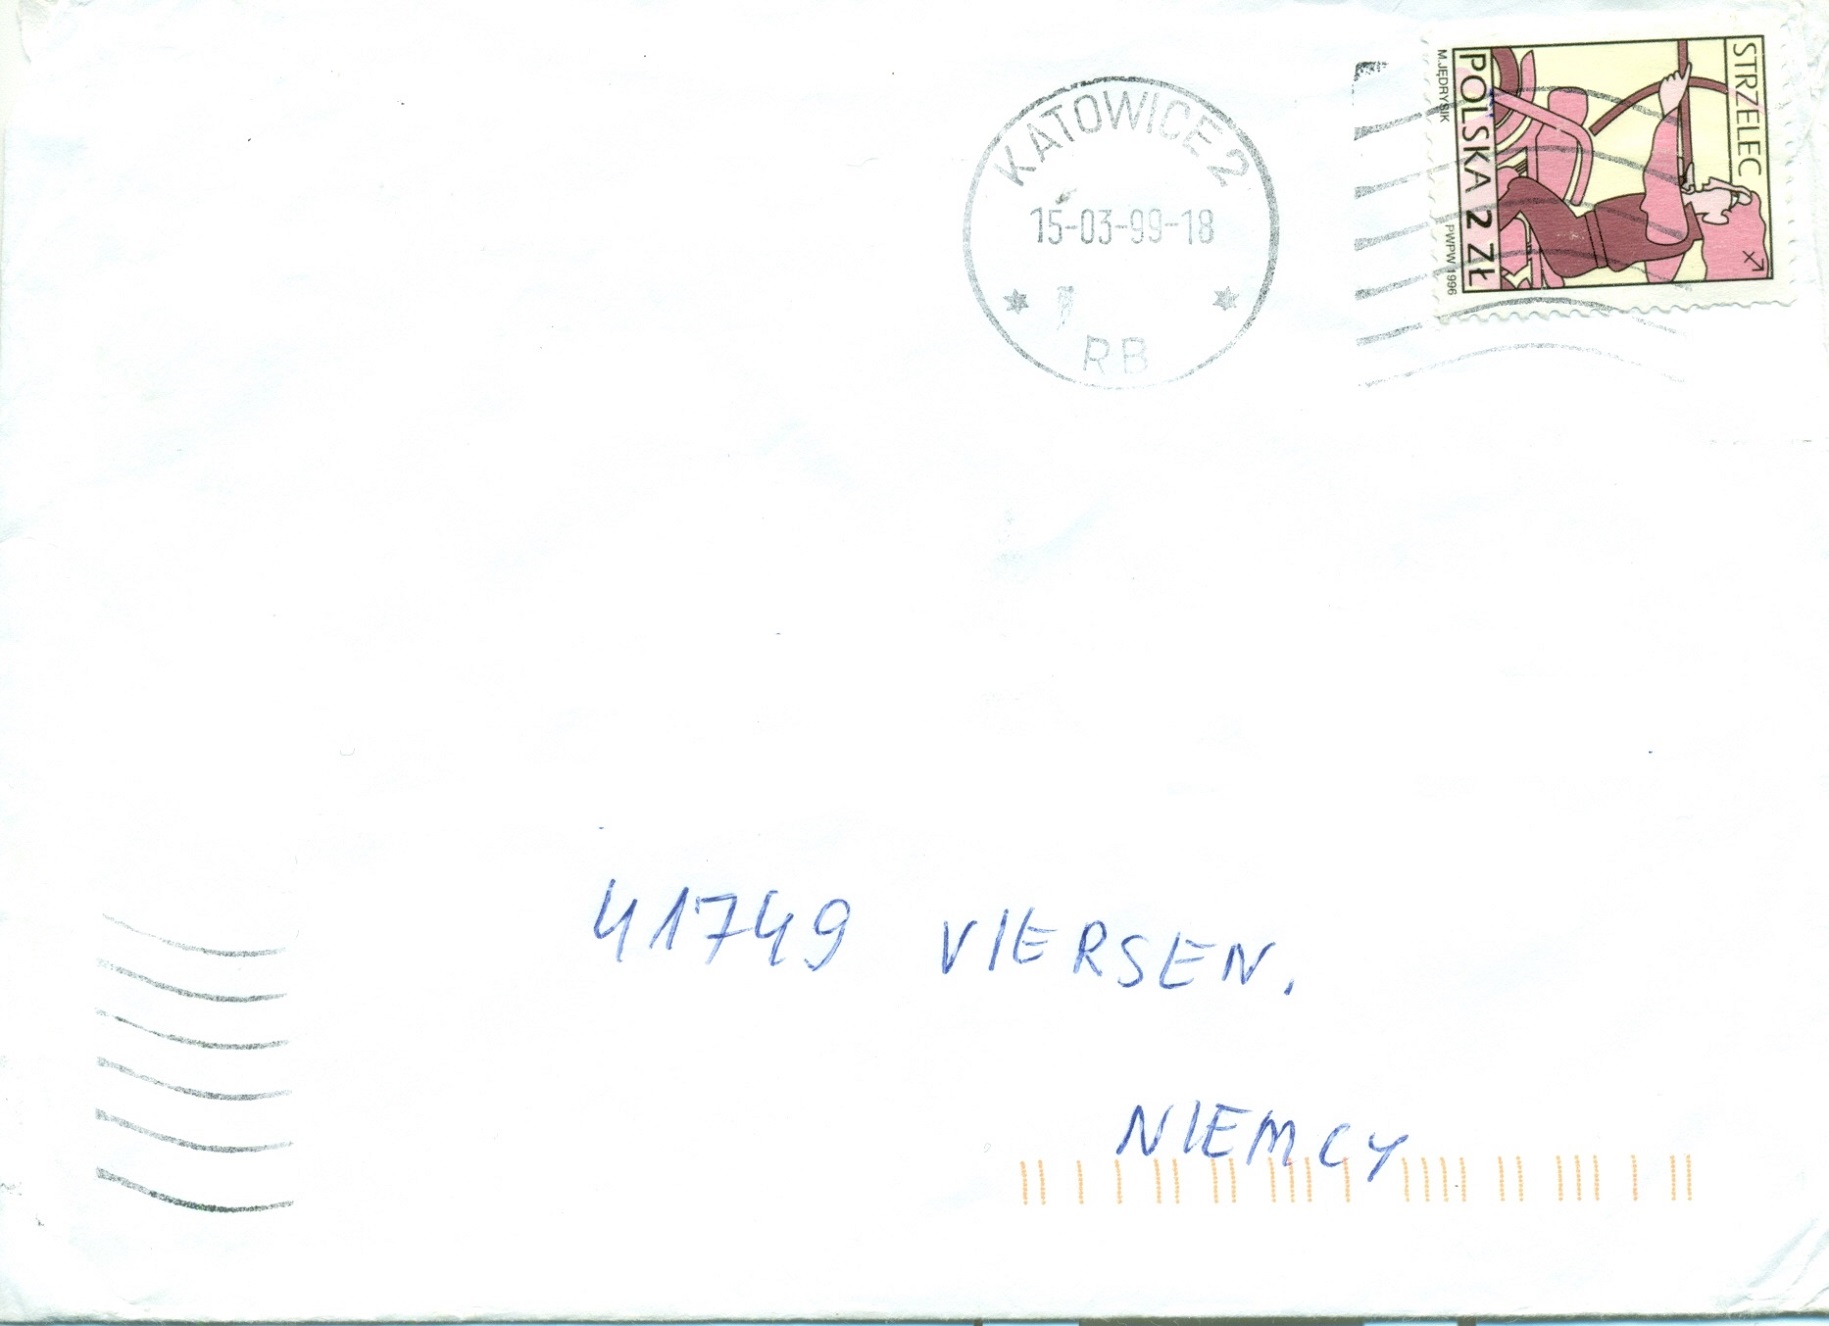 KATOWICE 2
15-03-99-18
RB
STRZELEC
POLSKA 2 ZŁ
M.JĘDRYSIK
PWPW 1996
41749 VIERSEN.
NIEMCY